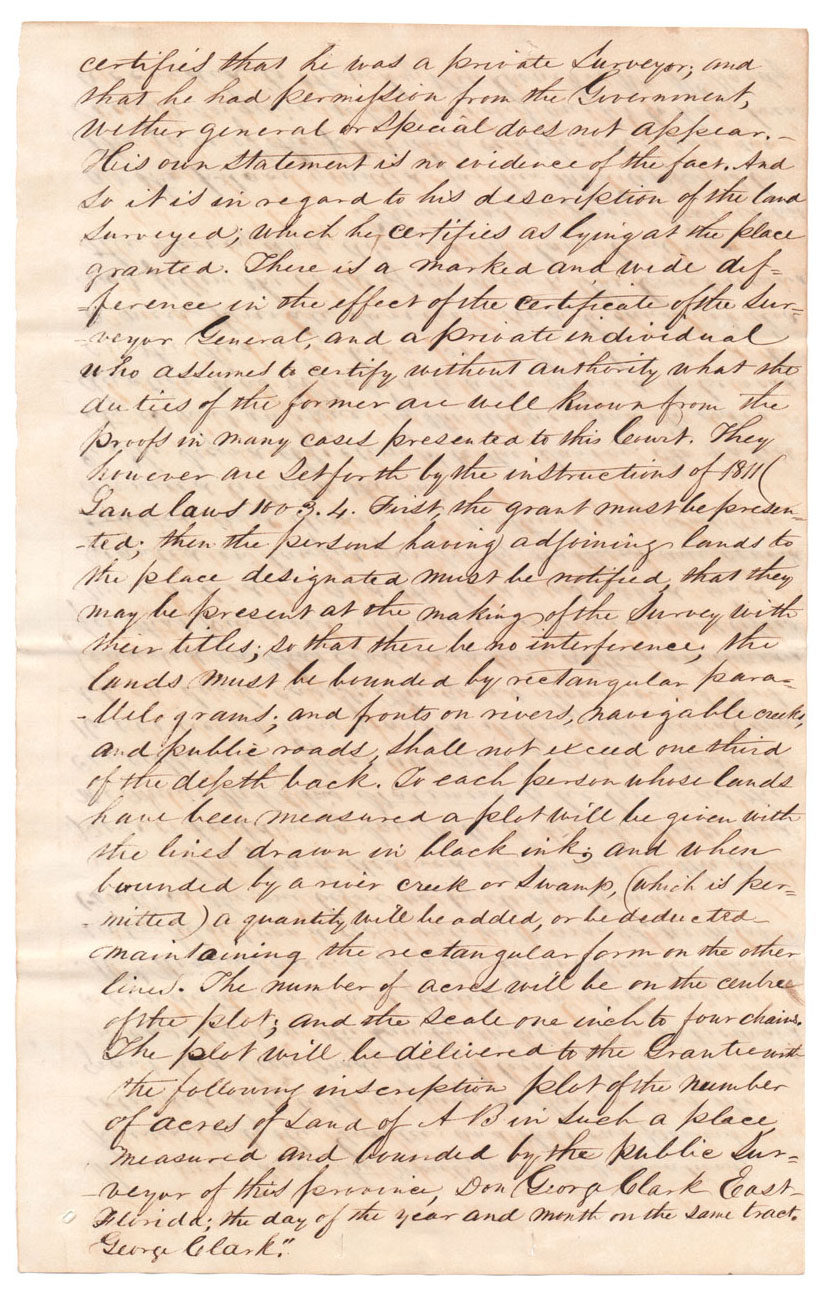 certifies that he was a private Surveyor; and
that he had permission from the Government,
wether general or special does not appear. -
His own statement is no evidence of the fact. And
so it is in regard to his description of the land
surveyed; which he certifies as lying at the place
granted. There is a marked and wide dif=
=ference in the effect of the certificate of the Sur=
-veyor General, and a private individual
who assumes to certify without authority what the
duties of the former are well known from the
proofs in many cases presented to this Court. They
however are set forth by the instructions of 1811 (
Land laws 1003.4. First, the grant must be presen-
-ted; then the persons having adjoining lands to
the place designated must be notified, that they
may be present at the making of the Survey with
their titles; so that there be no interference; the
lands must be bounded by rectangular para=
-llelograms; and fronts on rivers, navigable creeks,
and public roads, shall not exceed one third
of the depth back. To each person whose lands
have been measured a plot will be given with
the lines drawn in black ink; and when
bounded by a river creek or Swamp, (which is per=
-mitted) a quantity will be added, or be deducted
maintaining the rectangular form on the other
lines. The number of acres will be on the centre
of the plot; and the scale one inch to four chains.
The plot will be delivered to the Grantee with
the following inscription plot of the number
of acres of Land of A B in such a place
measured and bounded by the public Sur=
-veyor of this province, Don George Clark East
Florida; the day of the year and month on the same tract.
George Clark."